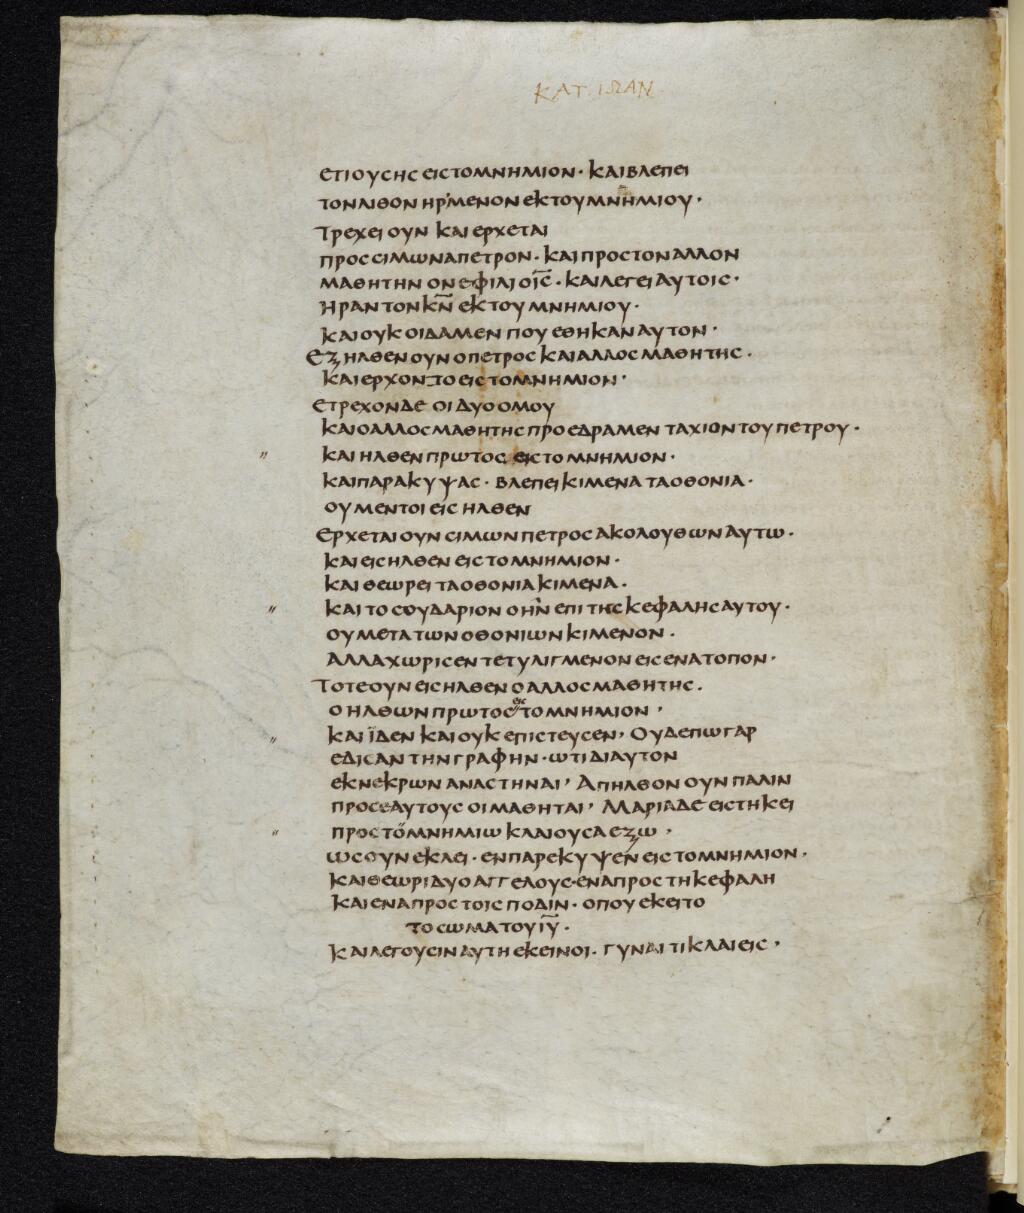 ΚΑΤ· ΙΩΑΝ
ΕΤΙΟΥCΗC ΕΙCΤΟΜΝΗΜΙΟΝ· ΚΑΙΒΛΕΠΕΙ
ΤΟΝΛΙΘΟΝ ΗΡΜΕΝΟΝ ΕΚΤΟΥΜΝΗΜΙΟΥ·
ΤΡΕΧΕΙ ΟΥΝ ΚΑΙ ΕΡΧΕΤΑΙ
ΠΡΟC CΙΜΩΝΑΠΕΤΡΟΝ· ΚΑΙ ΠΡΟC ΤΟΝ ΑΛΛΟΝ
ΜΑΘΗΤΗΝ ΟΝ ΕΦΙΛΙ ΟΙ̅C̅· ΚΑΙ ΛΕΓΕΙ ΑΥΤΟΙC·
ΗΡΑΝ ΤΟΝ Κ̅Ν̅ ΕΚ ΤΟΥ ΜΝΗΜΙΟΥ·
ΚΑΙ ΟΥΚ ΟΙΔΑΜΕΝ ΠΟΥ ΕΘΗΚΑΝ ΑΥΤΟΝ·
ΕΞΗΛΘΕΝ ΟΥΝ Ο ΠΕΤΡΟC ΚΑΙ ΑΛΛΟC ΜΑΘΗΤΗC·
ΚΑΙ ΕΡΧΟΝΤΟ ΕΙC ΤΟΜΝΗΜΙΟΝ·
ΕΤΡΕΧΟΝ ΔΕ ΟΙ ΔΥΟ ΟΜΟΥ
ΚΑΙ Ο ΑΛΛΟC ΜΑΘΗΤΗC ΠΡΟΕΔΡΑΜΕΝ ΤΑΧΙΟΝ ΤΟΥ ΠΕΤΡΟΥ·
ΚΑΙ ΗΛΘΕΝ ΠΡΩΤΟC ΕΙC ΤΟ ΜΝΗΜΙΟΝ·
ΚΑΙ ΠΑΡΑΚΥΨΑC· ΒΛΕΠΕΙ ΚΙΜΕΝΑ ΤΑ ΟΘΟΝΙΑ·
ΟΥ ΜΕΝΤΟΙ ΕΙCΗΛΘΕΝ
ΕΡΧΕΤΑΙ ΟΥΝ CΙΜΩΝ ΠΕΤΡΟC ΑΚΟΛΟΥΘΩΝ ΑΥΤΩ·
ΚΑΙ ΕΙCΗΛΘΕΝ ΕΙC ΤΟ ΜΝΗΜΙΟΝ·
ΚΑΙ ΘΕΩΡΕΙ ΤΑ ΟΘΟΝΙΑ ΚΙΜΕΝΑ·
ΚΑΙ ΤΟ CΟΥΔΑΡΙΟΝ Ο ΗΝ ΕΠΙ ΤΗC ΚΕΦΑΛΗC ΑΥΤΟΥ·
ΟΥ ΜΕΤΑ ΤΩΝ ΟΘΟΝΙΩΝ ΚΙΜΕΝΟΝ·
ΑΛΛΑ ΧΩΡΙC ΕΝΤΕΤΥΛΙΓΜΕΝΟΝ ΕΙC ΕΝΑ ΤΟΠΟΝ·
ΤΟΤΕ ΟΥΝ ΕΙCΗΛΘΕΝ Ο ΑΛΛΟC ΜΑΘΗΤΗC·
Ο ΗΛΘΩΝ ΠΡΩΤΟC ΕΙC ΤΟ ΜΝΗΜΙΟΝ·
ΚΑΙ ΪΔΕΝ ΚΑΙ ΟΥΚ ΕΠΙCΤΕΥCΕΝ· ΟΥΔΕΠΩ ΓΑΡ
ΕΔΙCΑΝ ΤΗΝ ΓΡΑΦΗΝ· ΩΤΙ ΔΙ ΑΥΤΟΝ
ΕΚ ΝΕΚΡΩΝ ΑΝΑCΤΗΝΑΙ· ΑΠΗΛΘΟΝ ΟΥΝ ΠΑΛΙΝ
ΠΡΟC ΕΑΥΤΟΥC ΟΙ ΜΑΘΗΤΑΙ· ΜΑΡΙΑ ΔΕ ΕΙCΤΗΚΕΙ
ΠΡΟC ΤΟ ΜΝΗΜΙΩ ΚΛΑΙΟΥCΑ ΕΞΩ·
ΩC ΟΥΝ ΕΚΛΕΙ· ΕΝΠΑΡΕΚΥΨΕΝ ΕΙC ΤΟ ΜΝΗΜΙΟΝ·
ΚΑΙ ΘΕΩΡΙ ΔΥΟ ΑΓΓΕΛΟΥC· ΕΝΑ ΠΡΟC ΤΗ ΚΕΦΑΛΗ
ΚΑΙ ΕΝΑ ΠΡΟC ΤΟΙC ΠΟCΙΝ· ΟΠΟΥ ΕΚΕΙΤΟ
ΤΟ CΩΜΑ ΤΟΥ Ι̅Υ̅·
ΚΑΙ ΛΕΓΟΥCΙΝ ΑΥΤΗ ΕΚΕΙΝΟΙ· ΓΥΝΑΙ ΤΙ ΚΛΑΙΕΙC·